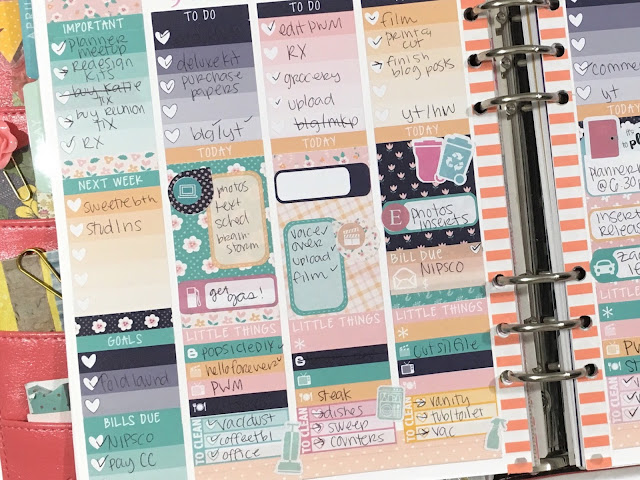 APRIL
IMPORTANT
planner
meetup
redesign
kits
buy Katie
fix
buy reunion
TIX
RX
NEXT WEEK
sweetrebth
studIns
GOALS
fold laund
BILLS DUE
NIPSCO
pay CC
TO DO
deluxe kit
purchase
papers
blg/yt
TODAY
photos
text
sched
brain-
storm
get gas!
LITTLE THINGS
popsicle DIY
helloforever2
PWM
TO CLEAN
vac dust
coffeetbl
office
TO DO
edit PWM
RX
grocery
upload
blg/mkp
TODAY
voice
over
upload
film
LITTLE THINGS
steak
TO CLEAN
dishes
sweep
counters
film
print &
cut
finish
blog posts
yt/hw
TODAY
E
Photos
inserts
BILL DUE
NIPSCO
$
LITTLE THINGS
cut sil file
TO CLEAN
vanity
tub/toilet
vac
comme
yt
planner
@ 6:30
insert
release
LITTLE